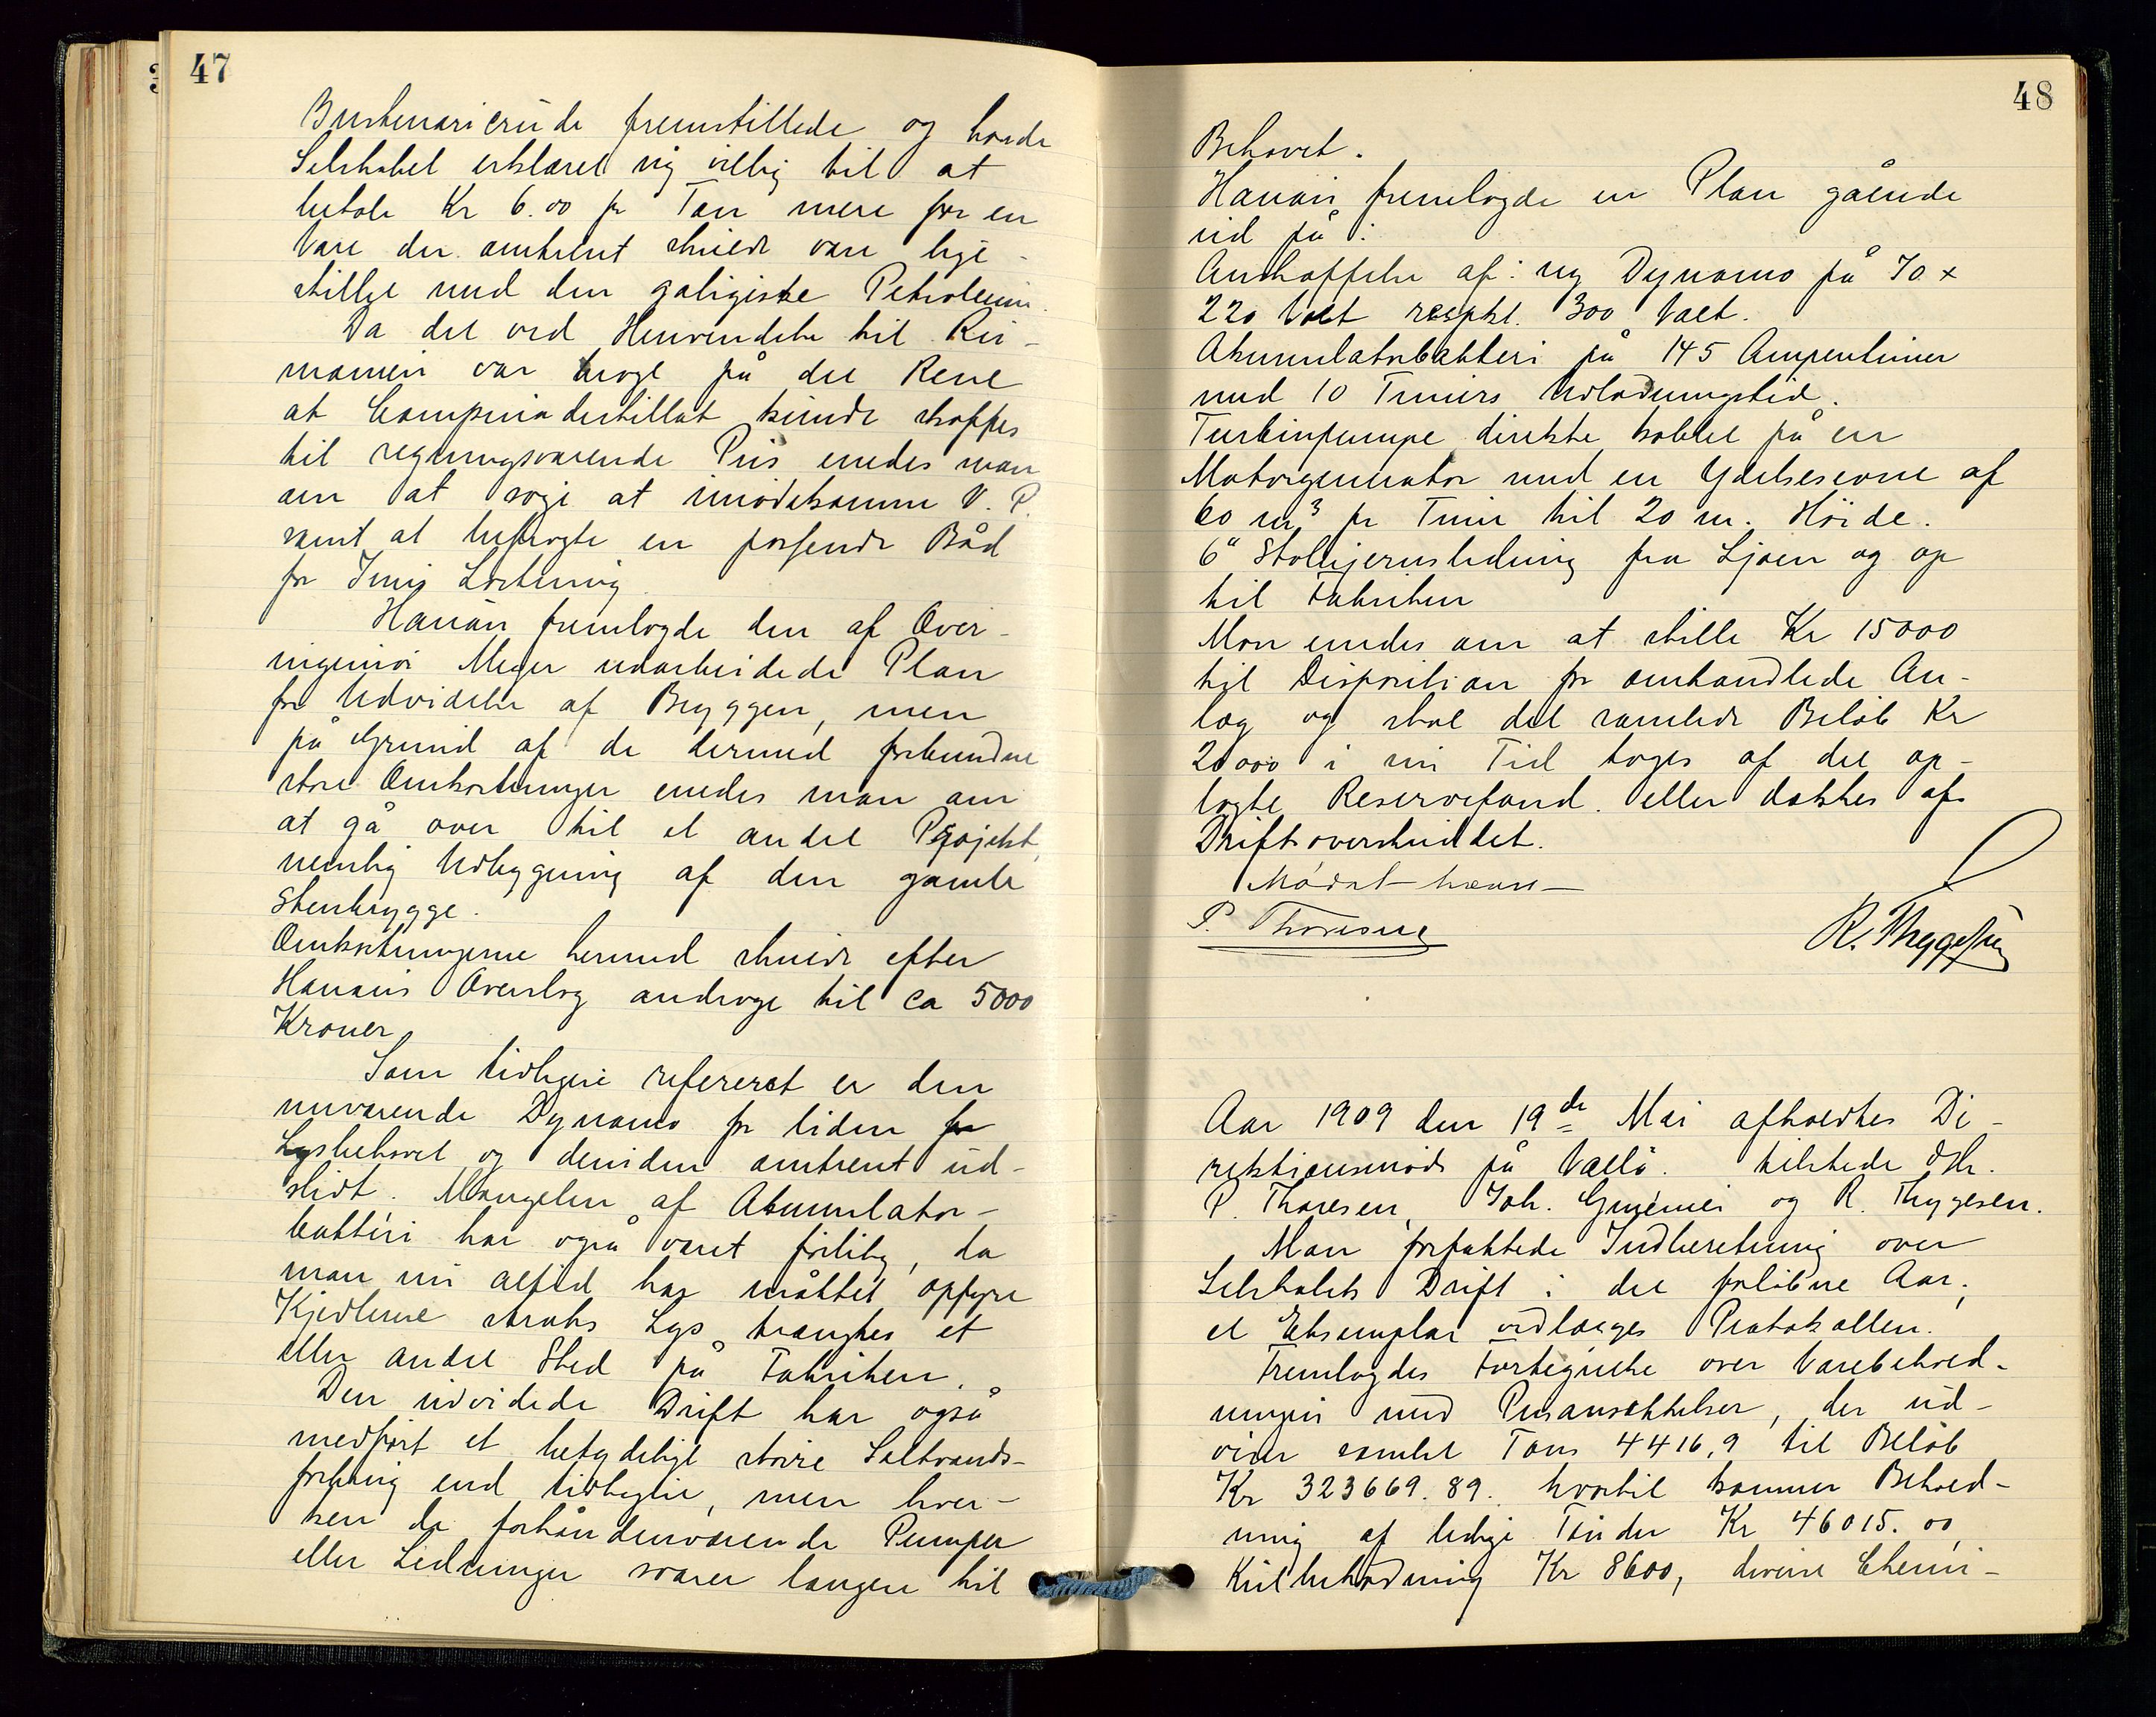 47
Bustenaricrude fremstillede og havde
Selskabet erklæret sig villig til at
betale Kr 6.00 pr Ton mere for en
Vare der omtrent skulde være lige-
stillet med den galigiske Petroleum.
Da det ved Henvendelse til Ru-
mænien var bragt på det Rene
at Campinadestillat kunde skaffes
til regningsvarende Pris enedes man
om at søge at imødekomme V. P.
samt at befragte en passende Båd
for Juni Lastning
Hanan fremlagde den af Over-
ingeniør Meyer udarbeidede Plan
for Udvidelse af Bryggen, men
på Grund af de dermed forbundne
store Omkostninger enedes man om
at gå over til et andet Projekt,
nemlig Udbygning af den gamle
Stenbrygge.
Omkostningerne hermed skulde efter
Hanans Overslag androge til ca 5000
Kroner
Som tidligere refereret er den
nuværende Dynamo for liden for
Lysbehovet og desuden omtrent ud-
slidt. Mangelen af Akumulator-
batteri har også været følelig, da
man nu altid har måttet opfyre
Kjedlerne straks Lys trængtes et
eller andet Sted på Fabriken.
Den udvidede Drift har også
medført et betydeligt større Saltvands-
forbrug end tidligere, men hver-
ken de forhåndenværende Pumper
eller Ledninger svarer længere til
48
Behovet.
Hanan fremlagde en Plan gående
ud på:
Anskaffelse af: ny Dynamo på 70 x
220 Volt respkt. 300 Volt.
Akumulatorbatteri på 145 Amperetimer
med 10 Timers Udladningstid.
Turbinpumpe direkte koblet på en
Motorgenerator med en Ydelsesevne af
60 m³ pr Time til 20 m. Høide.
6" Støbejernsledning fra Sjøen og op
til Fabriken
Man enedes om at stille Kr 15000
til Disposition for omhandlede An-
læg og skal det samlede Beløb Kr
20000 i sin Tid tages af det op-
lagte Reservefond eller dækkes af
Driftsoverskuddet.
Mødet hævet
P. Thoresen
R. Thygesen
Aar 1909 den 19de Mai afholdtes Di-
rektionsmøde på Vallø. tilstede Hr.
P. Thoresen, Joh. og R. Thygesen.
Man forfattede Indberetning over
Selskabets Drift i det forløbne Aar;
et Eksemplar vedlægges Protokollen.
Fremlagdes Fortegnelse over Varebehold-
ningen med Prisansættelser, der ud-
viser samlet Tons 4416,9 til Beløb
Kr 323669.89. hvortil kommer Behold-
ning af ledige Tønder Kr 46015.00
Kulbeholdning Kr 8600, diverse Chemi-